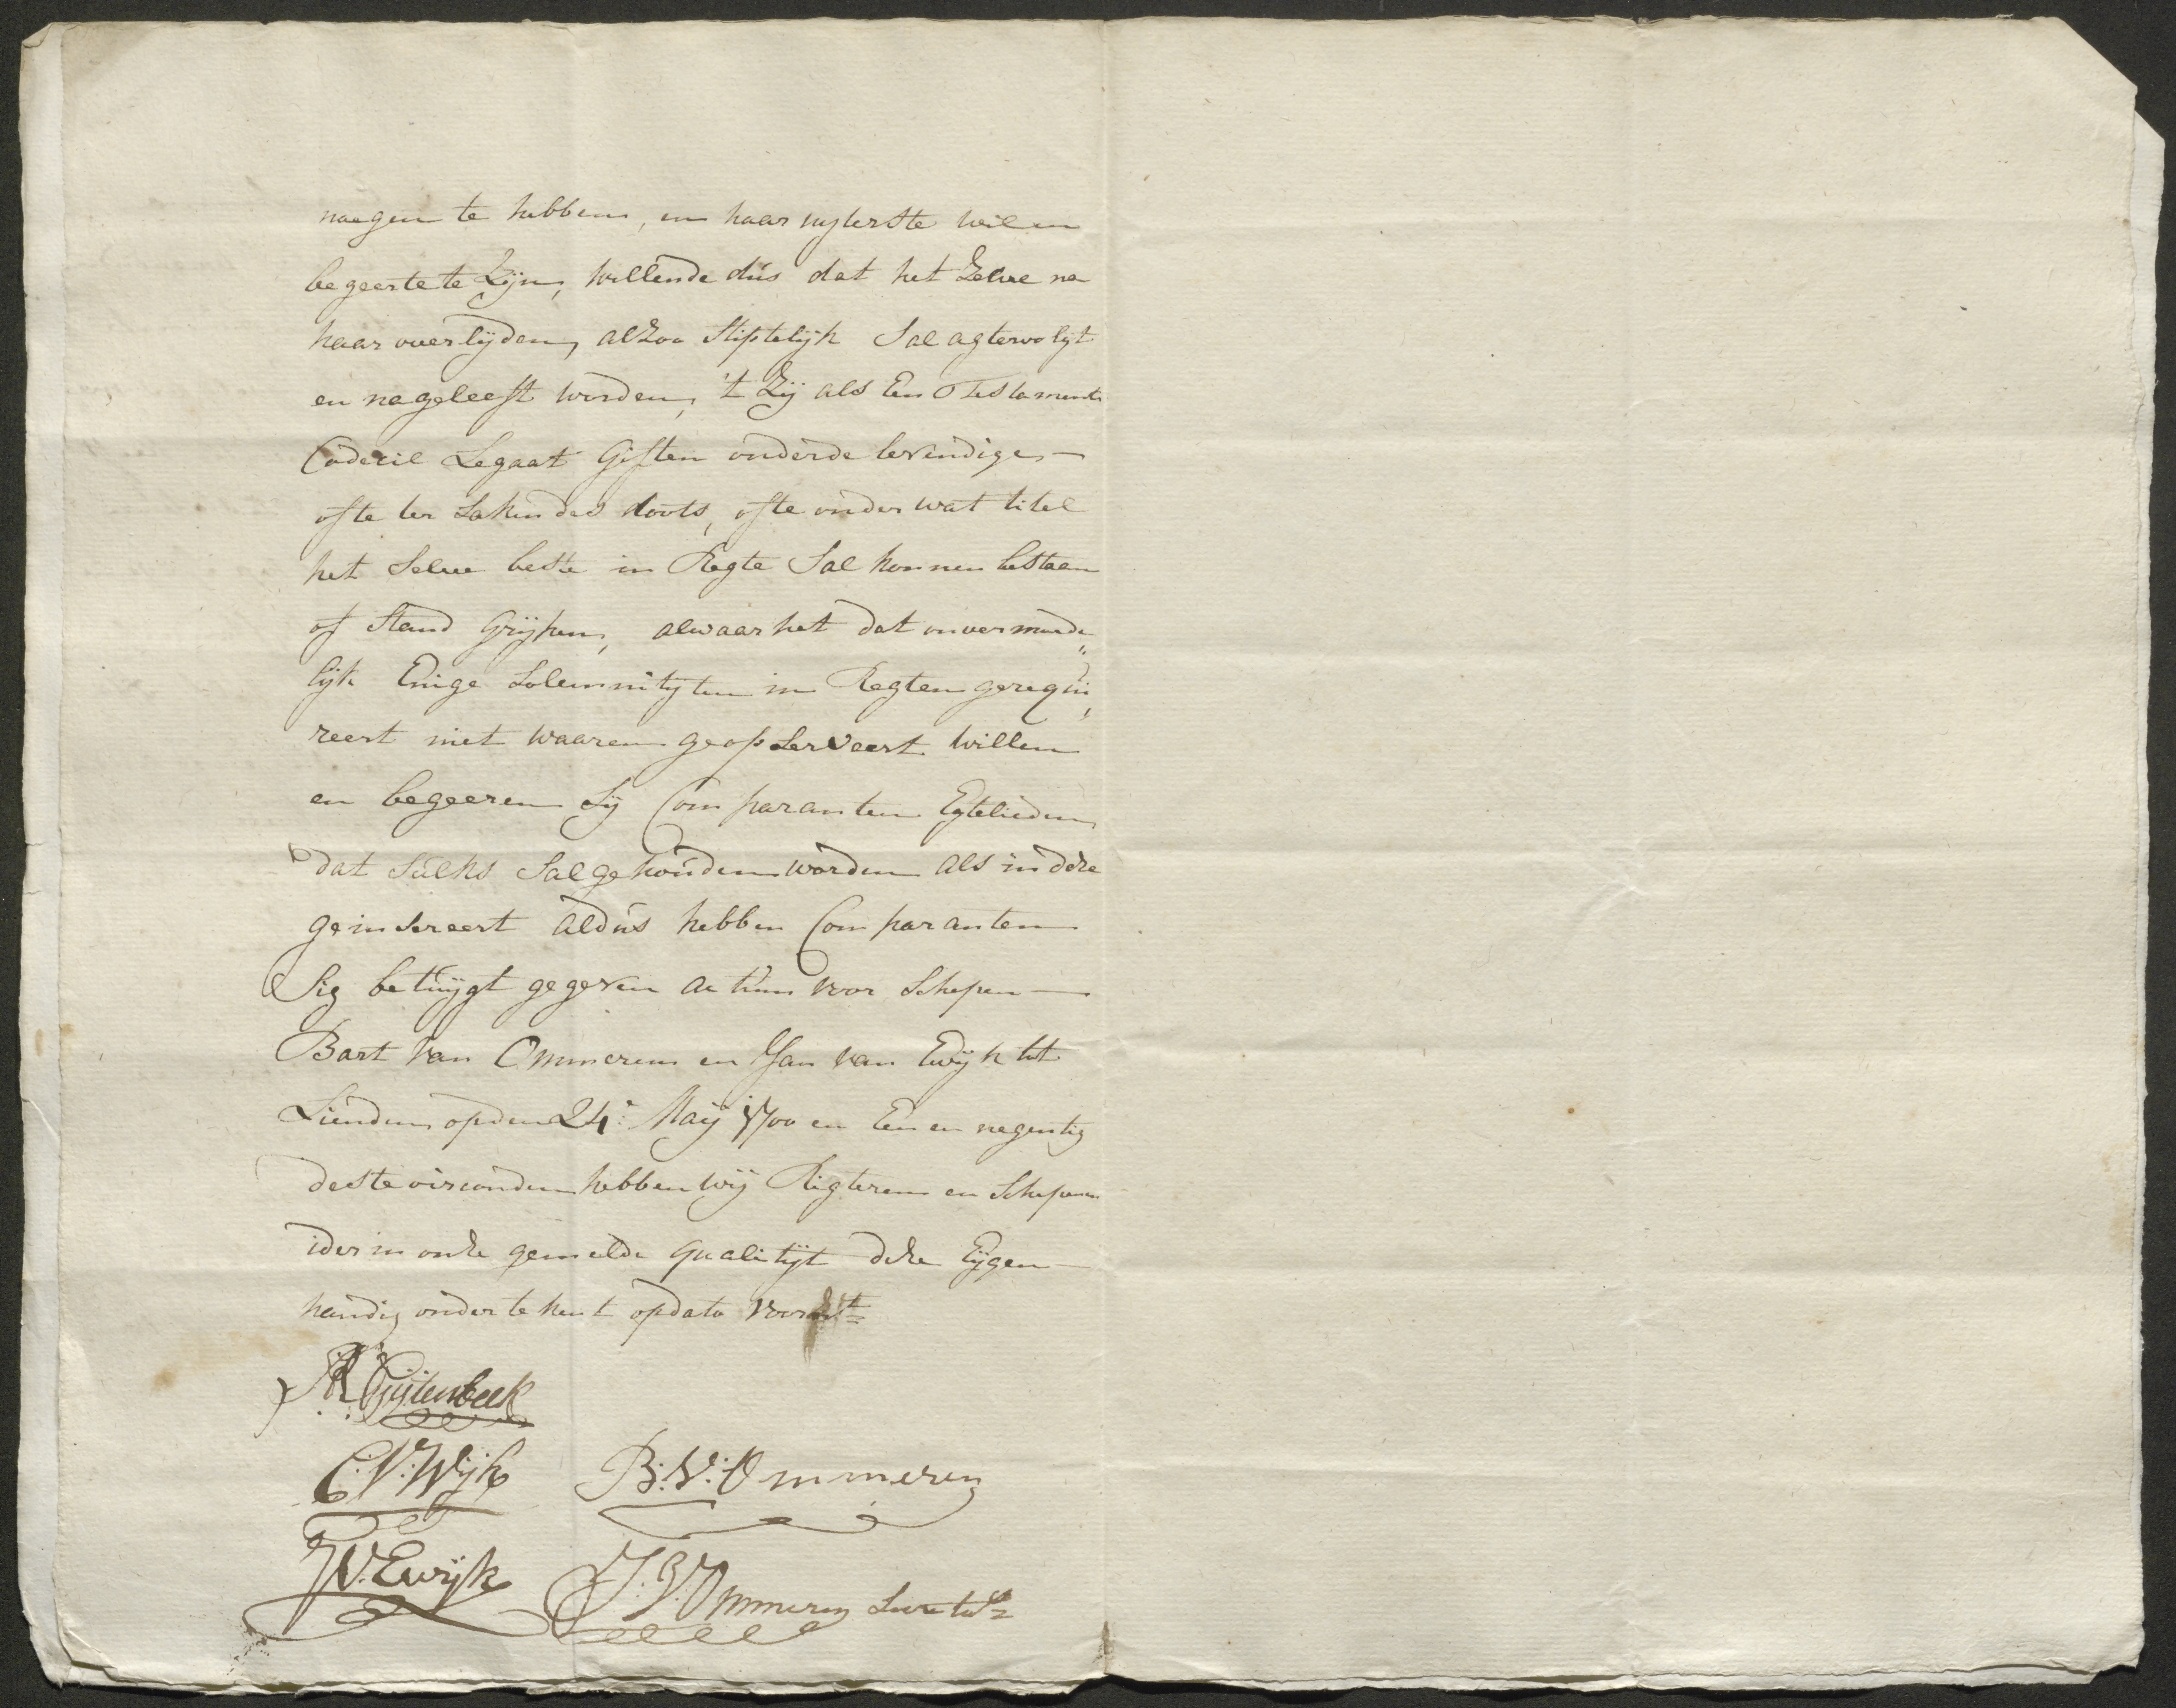 noegen te hebben, en haar uyterste wil en
begeerte te Zijn, willende dús dat het Zelve na
haar overlijden, alzoo Stiptelijk Sal agtervolgt
en nageleeft worden, 't Zij als Een Testament
Codecil Legaat Giften onder de levendige —
ofte ter Saken des doots, ofte onder wat titel
het Selve beste in Regte Sal konnen bestaen
of Stand Grijpen, alwaar het dat onvermeede„
lijk Enige Solemnitijten in Regten gerequi„
reert niet waaren geopserveert willen
en begeeren Sij Comparanten Egtelieden
dat Súlks Sal gehoúden worden als in deze
geinsereert aldús hebben Comparanten
Sig betúijgt gegeven actum voor Schepen —
Bart van Ommeren en Jan van Ewijk tot
Lienden op den 24: Maij 1700 en Een en negentig
deste oirconden hebben wij Rigteren en Schepenen
ider in onze gemelde qualitijt deze Eijgen —
handig ondertekent op dato voorst=
Ruijtenbeek
C:V:Wijk B:V:Ommeren
JV:Ewijk J:V:Ommeren Secretas=